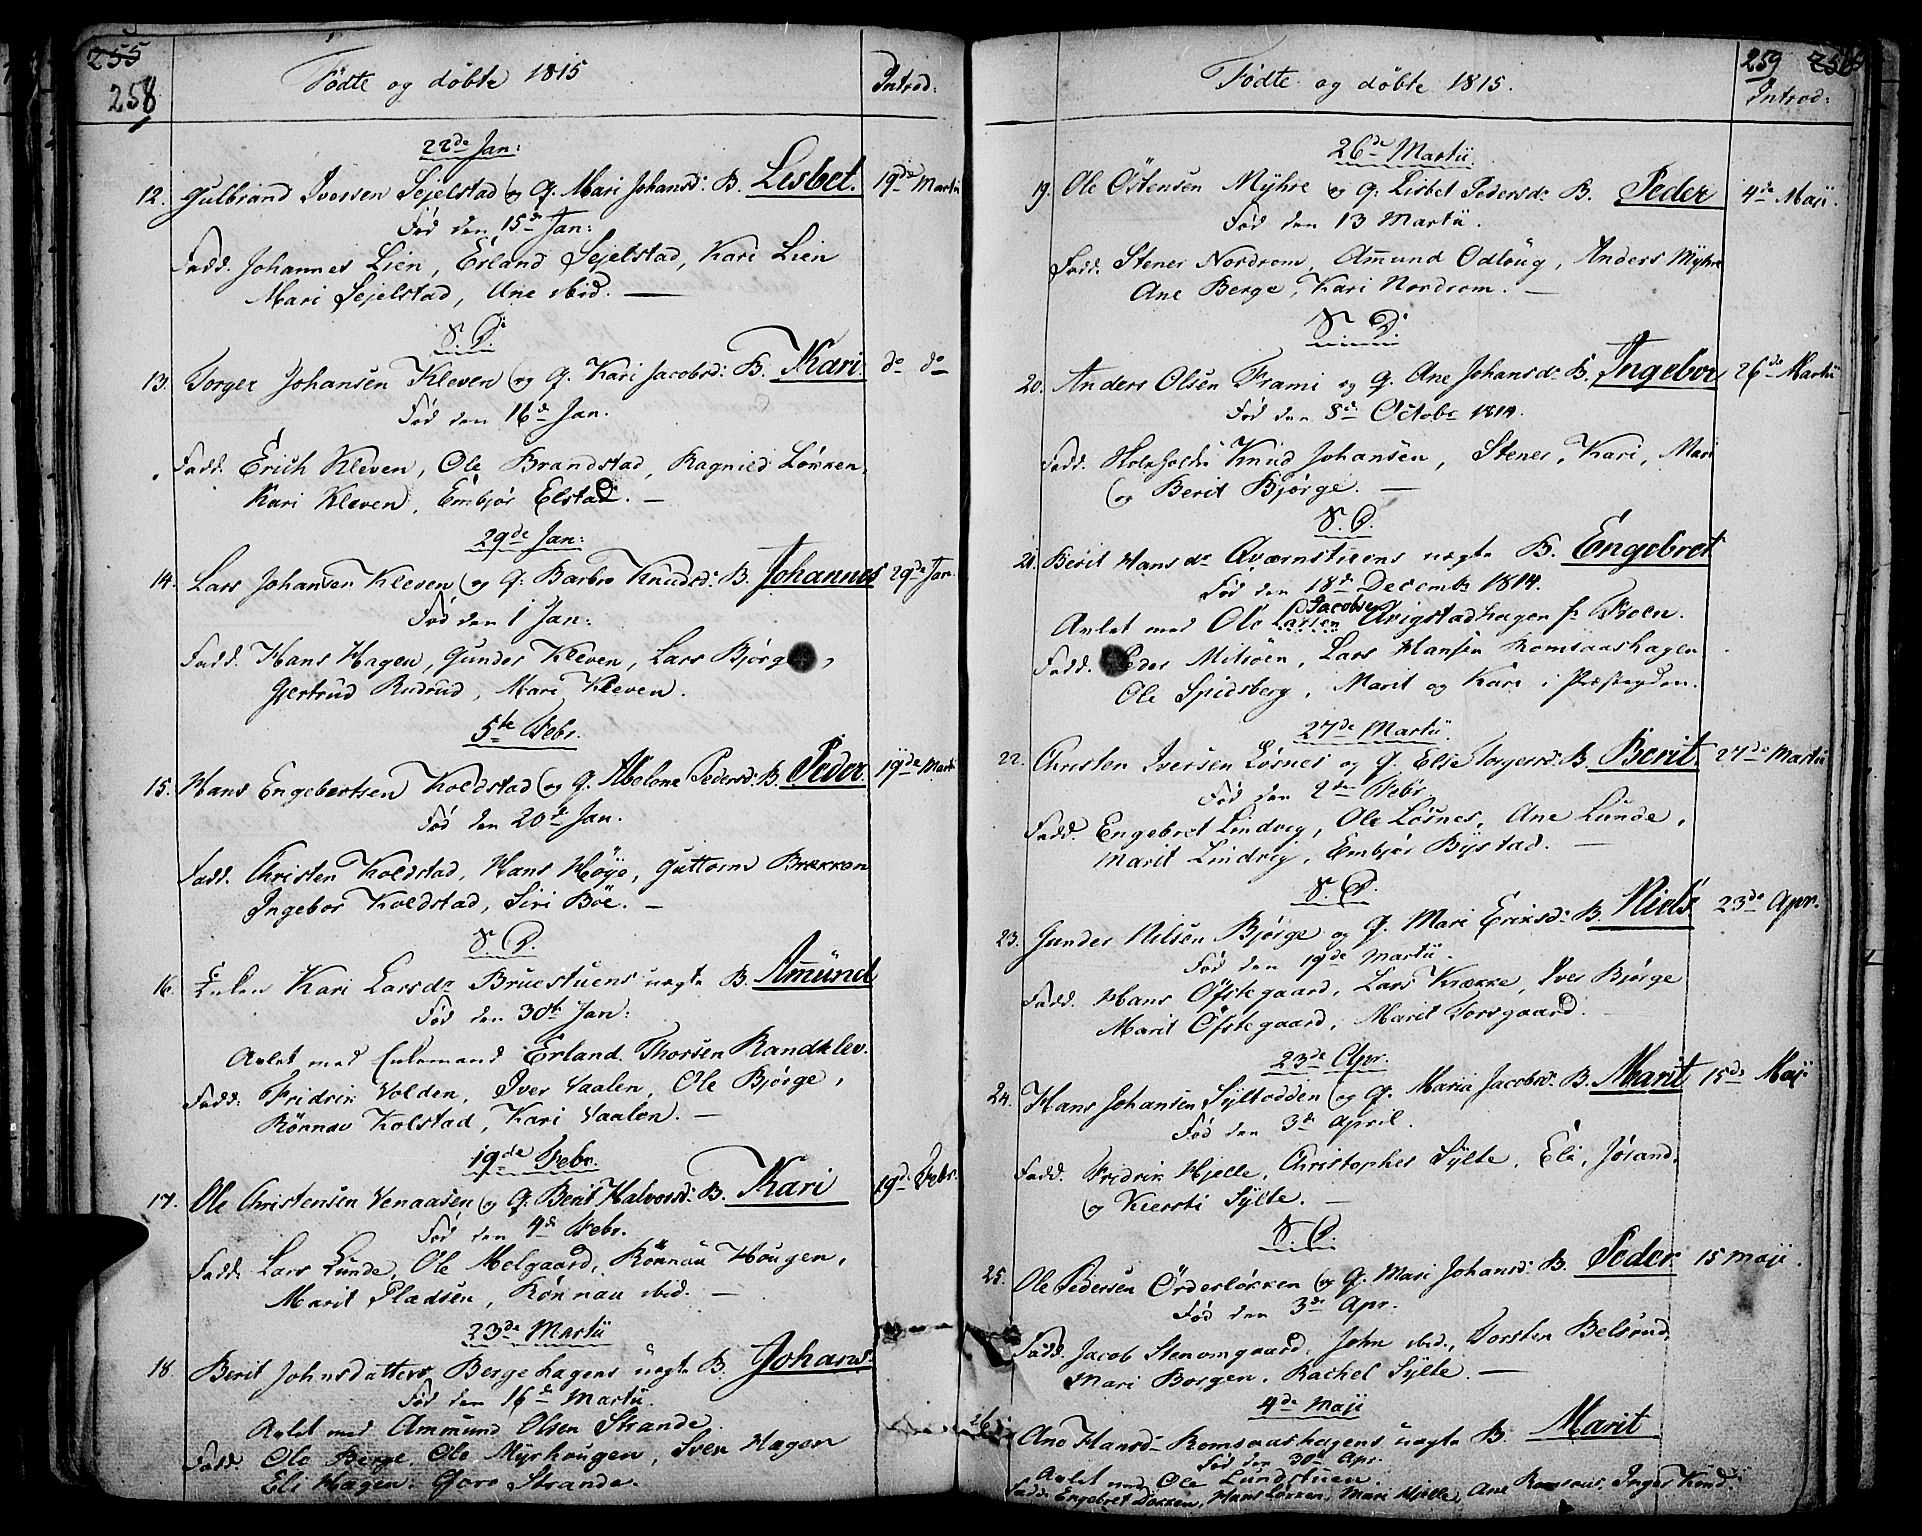 255
258
Födte og döbte 1815
Introd:
22de Jan:
12. Gulbrand Iversen Sejelstad og Q. Mari Johansd: B. Lesbet. 19de Martii
Fód den 15d Jan:
Fadd. Johannes Lien, Erland Sejelstad, Kari Lien
Mari Sejelstad, Ane ibid. —
S. D:
13. Torger Johansen Kleven og Q. Kari Jacobsd: B. Kari do do
Fód den 16d Jan.
Fadd. Erich Kleven, Ole Brandstad, Ragnild Lökken,
Kari Kleven, Embjör Elstad. —
29de Jan:
14. Lars Johansen Kleven og Q: Barbro Knudsd: B. Johannes 29de Jan.
Fód den 1 Jan:
Fadd. Hans Hagen, Gunder Kleven, Lars Bjørg
Gjertrud Rudrud, Mari Kleven.
5te Febr.
15. Hans Engebretsen Koldstad og Q. Abelone Pedersd: B. Peder. 19de Martii
Fód den 20d Jan.
Fadd. Christen Koldstad, Hans Höye, Guttorm Brekken
Ingebor Koldstad, Siri Böe. —
S. D.
16. Enken Kari Larsdr Bruestuens uægte B. Amund
Fód den 30te Jan:
Avlet med Enkemand Erland Thorsen Randklev.
Fadd: Fridrik Volden, Iver Vaalen, Ole Bjørge,
Rönnav Kolstad, Kari Vaalen. —
19de Febr.
17. Ole Christensen Venaasen og Q. Berit Halvorsd: B. Kari 19d Febr.
Fód den 4de Febr.
Fadd. Lars Lunde, Ole Melgaard, Rönnau Hougen,
Marit Pladsen, Rönnau ibid. —
23de Martii
18 Berit Johnsdatters Bergehagens uægte B. Johans:
Fód den 16d Martii
Avlet med Ammund Olsen Strande.
Fadd. Ole Berge, Ole Myrhougen, Sven Hagen
Eli Hagen. Goro Strande.
259
Födte og döbte 1815.
Introd:
26de Martii
19. Ole Östensen Myhre og Q. Lisbet Pedersd: B. Peder 4de Maji.
Fód den 13 Martii.
Fadd. Stener Nordrom, Amund Odloug, Anders Myhre
Ane Berge, Kari Nordrom. —
S. D:
20. Anders Olsen Frami og Q. Ane Johansd: B. Ingebor 26de Martii
Fód den 8de Octobr 1814.
Fadd. Knud Johansen, Stener, Kari, Mari
og Berit Bjørge. —
S. D.
21. Berit Hansdr Qværnstuens uægte B. Engebret
Fód den 18d Decembr 1814.
Jacobsen
Avlet med Ole Larsen Qvigstadhagen fr Froen.
Fadd. Peder Mitsöen, Lars Hansen Romsaashagen
Ole Spidsberg, Marit og Kari i Præstegden.
27de Martii.
22. Christen Iversen Lösnes og Q. Elie Torgersd: B. Berit. 27de Martii
Fód den 2den Febr.
Fadd. Engebret Lindvig, Ole Lösnes, Ane Lunde,
Marit Lindvig, Embjör Bystad. —
S. D.
23. Gunder Nilsen Bjørge og Q. Mari Eriksd: B. Niels 23de Apr.
Fód den 19de Martii.
Fadd. Hans Öfstegaard, Lars Krække, Iver Bjørge
Marit Öfstegaard, Marit Forsgaard.
23de Apr.
24. Hans Johansen Syltodden og Q. Maria Jacobsd: B. Marit 15de Maji
Fód den 3de April.
Fadd. Fridrik Hjelle, Christopher Sylte, Eli, Jörand,
og Kiersti Sylte. —
S. D.
25. Ole Pedersen Örderlökken og Q. Mari Johansd: B. Peder. 15 Maji.
Fód den 3de Apr.
Fadd. Jacob Stenomgaard, John ibid., Torsten Belsund,
Mari Borgen, Rachel Sylte. —
4de Maji
26. Ane Hansd: Romsaashagens uægte B. Marit
Fód den 30te Apr.
Avlet med Ole Lundstuen.
Fadd. Engebret Dokken, Hans Lökken, Mari Hjelle, Ane Romsaas, Inger